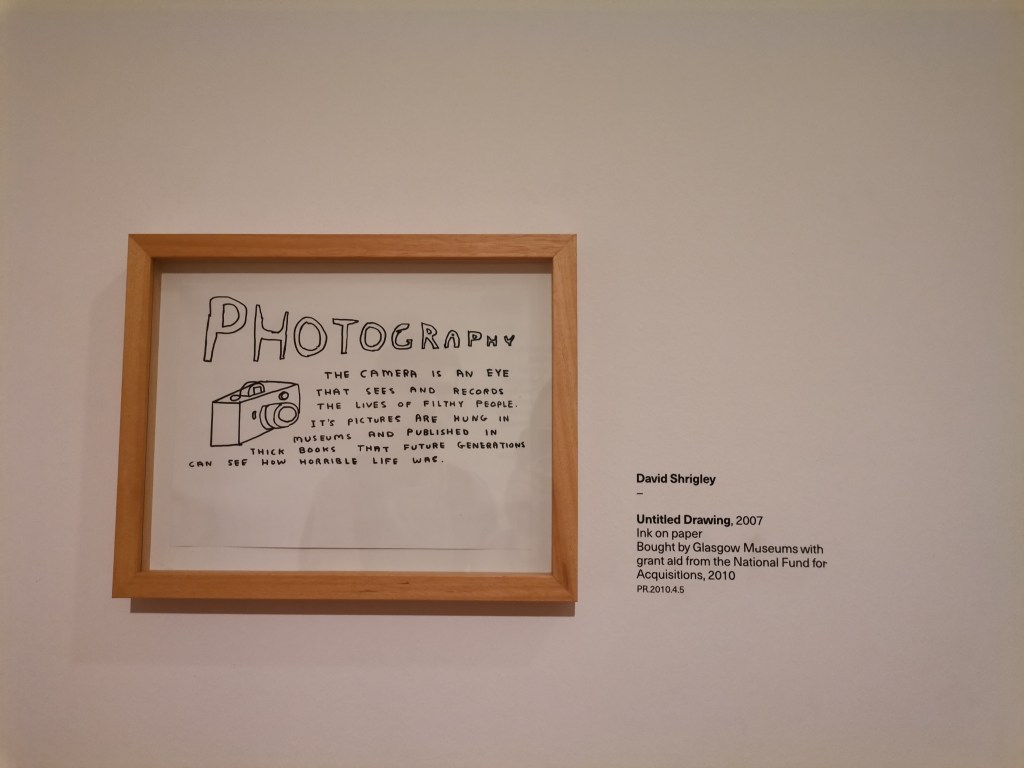 PHOTOGRAPHY
THE CAMERA IS AN EYE
THAT SEES AND RECORDS
THE LIVES OF FILTHY PEOPLE.
IT'S PICTURES ARE HUNG IN
MUSEUMS AND PUBLISHED IN
THICK BOOKS THAT FUTURE GENERATIONS
CAN SEE HOW HORRIBLE LIFE WAS.
David Shrigley
–
Untitled Drawing, 2007
Ink on paper
Bought by Glasgow Museums with
grant aid from the National Fund for
Acquisitions, 2010
PR.2010.4.5